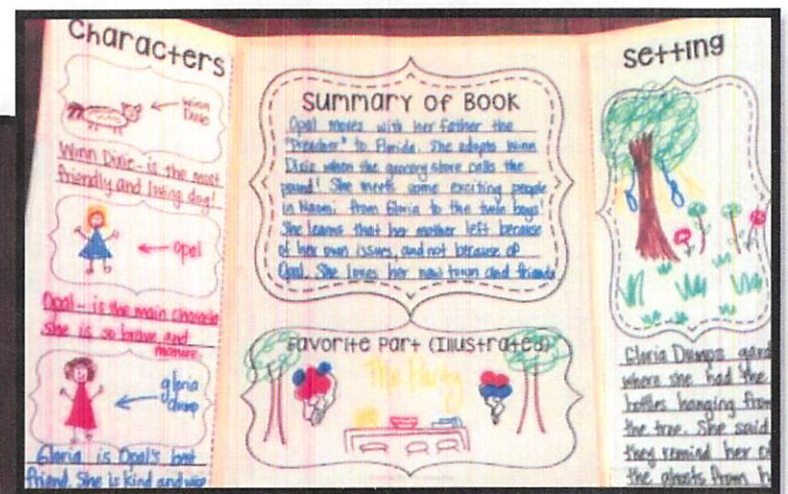 Characters
Winn
Dixie
Winn Dixie - is the most
friendly and loving dog!
opal
Opal - is the main character
she is so brave and
mature.
gloria
dump
Gloria is Opal's best
friend. She is kind and wise
Summary of Book
Opal moves with her father the
"Preacher" to Florida. She adopts Winn
Dixie when the grocery store calls the
pound! She meets some exciting people
in Naomi, from Gloria to the twin boys!
She learns that her mother left because
of her own issues, and not because of
Opal. She loves her new town and friends
Favorite Part (Illustrated)
The Party
Setting
Gloria Dumps gard
where she had the
bottles hanging from
the tree. She said
they remind her of
the ghosts from h